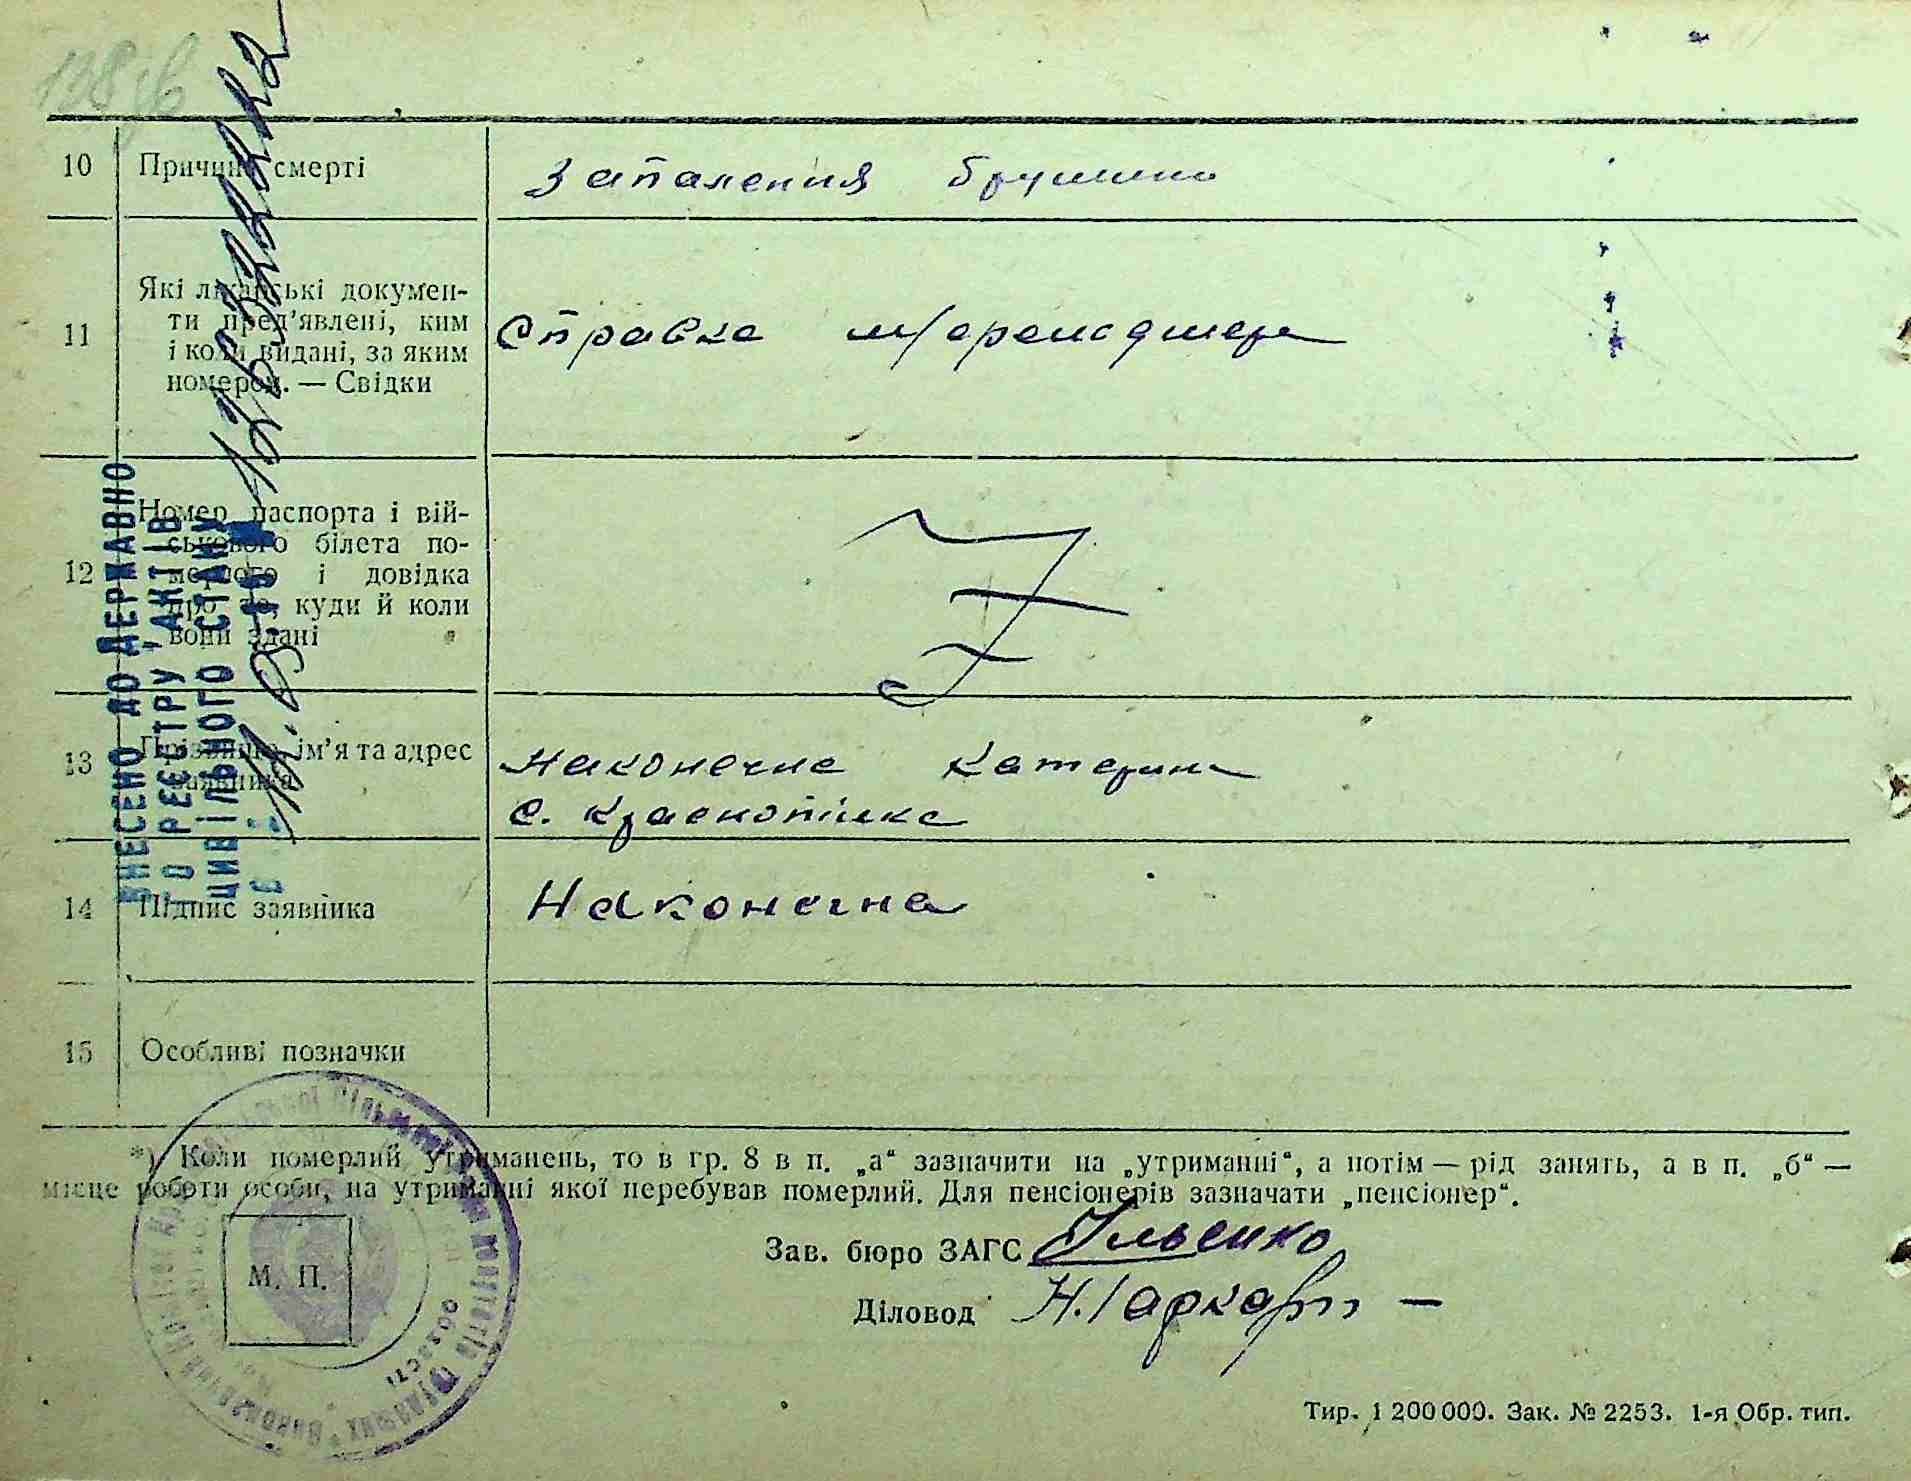 138 зв
10 Причина смерті Запалення брушини
11 Які лікарські докумен-
ти пред'явлені, ким
і коли видані, за яким
номером. — Свідки
Справка
12 Номер паспорта і вій-
ськового білета по-
мерлого і довідка
про те, куди й коли
вони здані
Z
13 Прізвище, ім'я та адрес
заявника
Наконечна Катерина
с. Краснопілка
14 Підпис заявника Наконечна
15 Особливі позначки
ВНЕСЕНО ДО ДЕРЖАВНО
ГО РЕЄСТРУ АКТІВ
ЦИВІЛЬНОГО СТАНУ
*) Коли померлий утриманець, то в гр. 8 в п. „а“ зазначити на „утриманні“, а потім — рід занять, а в п. „б“ —
місце роботи особи, на утриманні якої перебував померлий. Для пенсіонерів зазначати „пенсіонер“.
Зав. бюро ЗАГС Ильенко
М. П.
Діловод
області
Тир. 1 200 000. Зак. № 2253. 1-я Обр. тип.